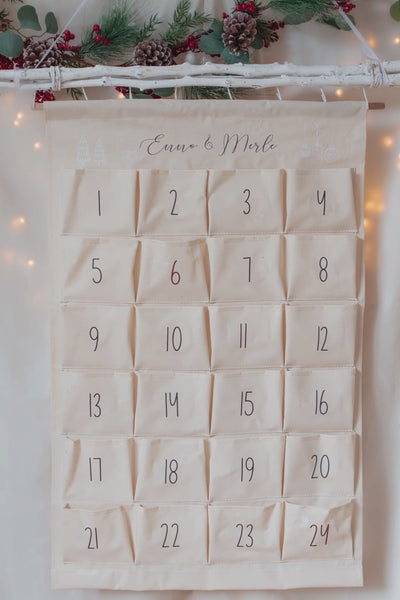 Enno & Merle
1 2 3 4
5 6 7 8
9 10 11 12
13 14 15 16
17 18 19 20
21 22 23 24